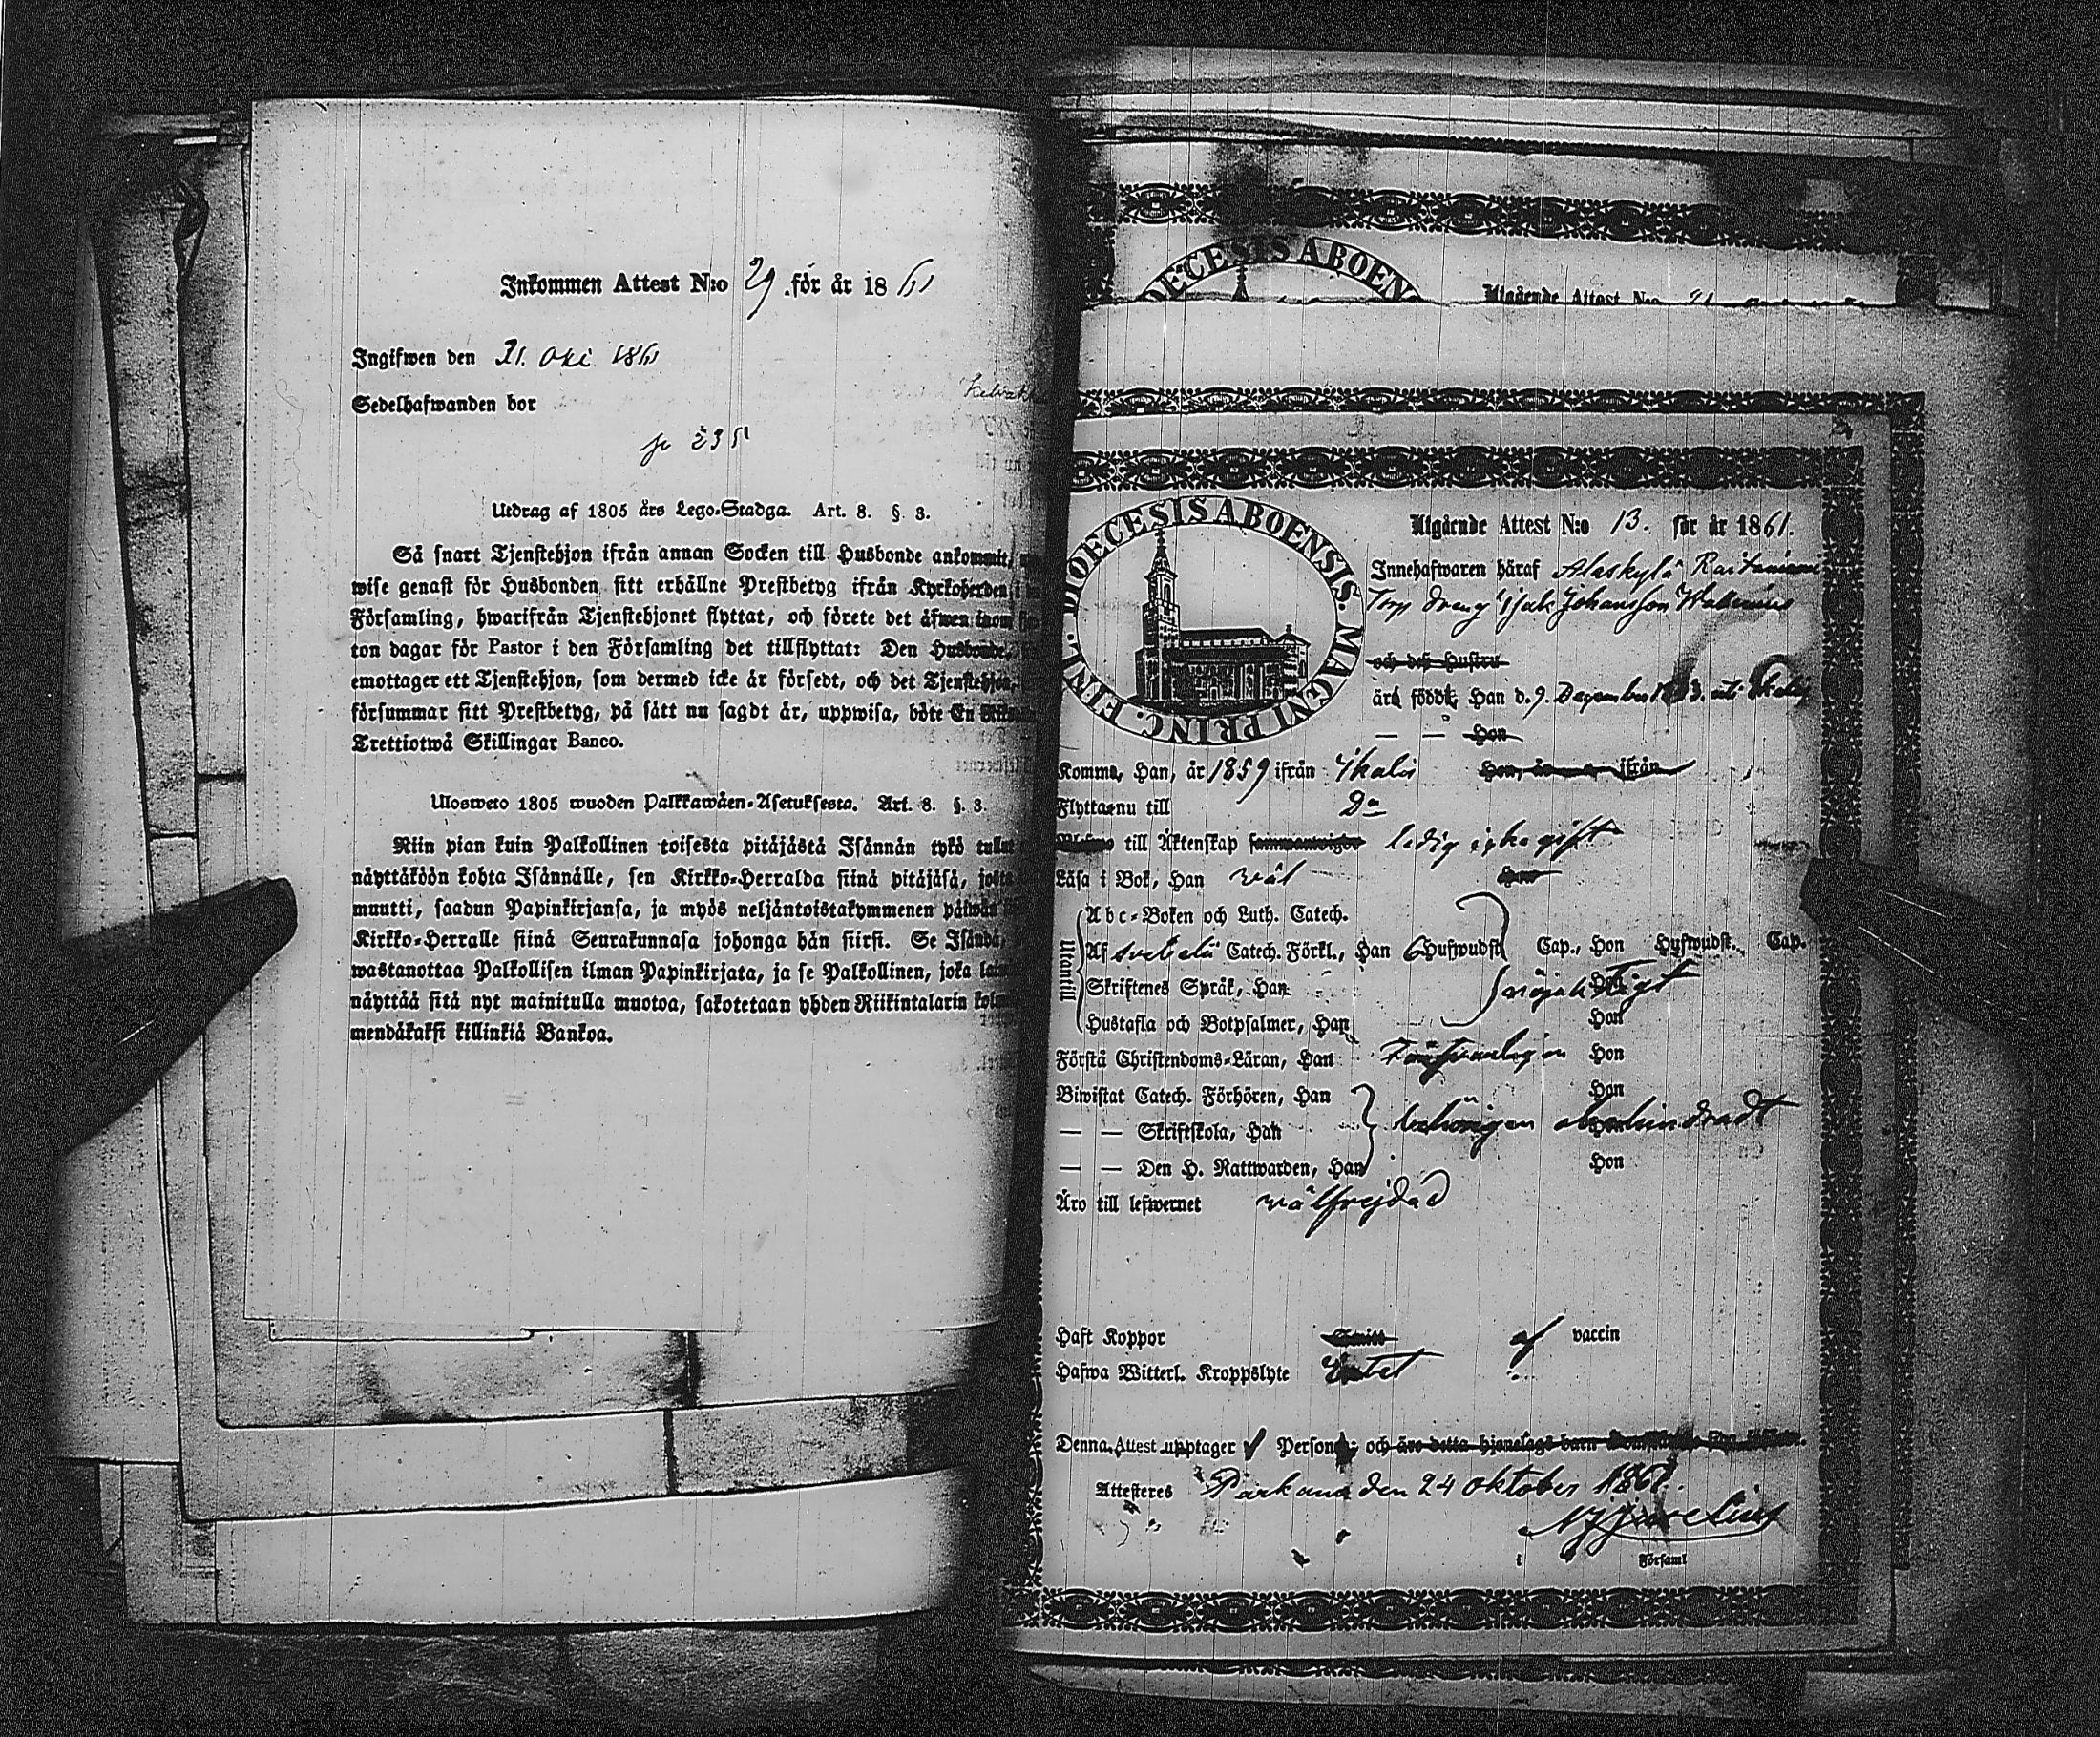 Inkommen Attest N:o 29 för år 1861
Ingifwen den 31. Okt 1861
Sedelhafwanden bor
235
Utdrag af 1805 års Lego-Stadga. Art. 8. §. 3.
Så snart Tjenstehjon ifrån annan Socken till Husbonde ankommit,
wise genast för Husbonden sitt erhållne Prestbetyg ifrån Kyrkoherden i
Församling, hwarifrån Tjenstehjonet flyttat, och förete det äfwen inom
ton dagar för Pastor i den Församling det tillflyttat: Den Husbonde,
emottager ett Tjenstehjon, som dermed icke är försedt, och det Tjenstehjon,
försummar sitt Prestbetyg, på sätt nu sagdt är, uppwisa, böte En
Trettiotwå Skillingar Banco.
Ulosweto 1805 wuoden Palkkawäen-Asetuksesta. Art. 8. §. 3.
Niin pian kuin Palkollinen toisesta pitäjästä Isännän tykö tullut
näyttäköön kohta Isännälle, sen Kirkko-Herralda siinä pitäjäsä, josta
muutti, saadun Papinkirjansa, ja myös neljäntoistakymmenen päiwän
Kirkko-Herralle siinä Seurakunnasa johonga hän siirsi. Se Isändä,
wastanottaa Palkollisen ilman Papinkirjata, ja se Palkollinen, joka
näyttää sitä nyt mainitulla muotoa, sakotetaan yhden Riikintalarin
mendäkaksi killinkiä Bankoa.
DIOECESIS ABOENS
Utgående Attest N:o
DIOECESIS ABOENSIS. MAGNI PRINC. FINL.
Utgående Attest N:o 13. för år 1861.
Innehafwaren häraf Alaskylä Raitaniemi
Torp dreng Isak Johansson Wallenius
och des Hustru
äro födde, Han d. 9. December
— — Hon
Komme, Han, år 1859 ifrån Ikalis Hon, år ifrån
Flytta nu till Do
till Äktenskap ledig icke gift
Läsa i Bok, Han wäl Hon
Utantill
Abc-Boken och Luth. Catech.
Af Svebelii Catech. Förkl., Han 6 Hufwudst. Cap., Hon Hufwudst. Cap.
Skriftenes Språk, Han nöjaktigt Hon
Hustafla och Botpsalmer, Han Hon
Förstå Christendoms-Läran, Han Hon
Biwistat Catech. Förhören, Han Hon
— — Skriftskola, Han behörigen obehindradt
— — Den H. Nattwarden, Han Hon
Äro till lefwernet wälfrejdad
Haft Koppor af vaccin
Hafwa Witterl. Kroppslyte Intet
Denna Attest upptager 1 Person; och äro detta hjonelags barn
Attesteres Parkano den 24 oktober 1861.
i Församl